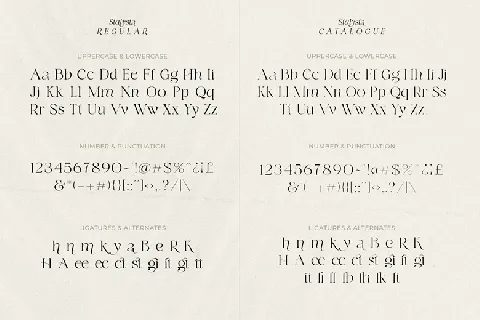 REGULAR
UPPERCASE & LOWERCASE
Aa Bb Cc Dd Ee Ff Gg Hh Ii
Jj Kk Ll Mm Nn Oo Pp Qq
Rr Ss Tt Uu Vv Ww Xx Yy Zz
NUMBER & PUNCTUATION
1234567890
LIGATURES & ALTERNATES
h n m k y a B e R K
H A ee ec ct st gi fi gt tt
CATALOGUE
UPPERCASE & LOWERCASE
Aa Bb Cc Dd Ee Ff Gg Hh Ii
Jj Kk Ll Mm Nn Oo Pp Qq Rr Ss
Tt Uu Vv Ww Xx Yy Zz
NUMBER & PUNCTUATION
1234567890
LIGATURES & ALTERNATES
h n m k y a B e R K
H A ee ec ct st gi fi gt